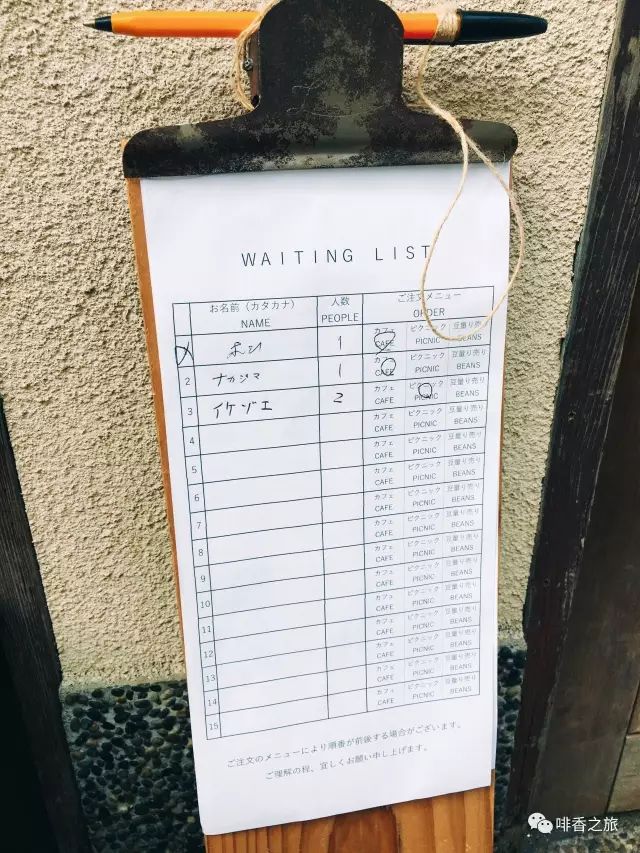 WAITING LIST
お名前（カタカナ） 人数 ご注文メニュー
NAME PEOPLE ORDER
カフェ ピクニック 豆量り売り
1 CAFE PICNIC BEANS
カフェ ピクニック 豆量り売り
2 ナカジマ 1 CAFE PICNIC BEANS
カフェ ピクニック 豆量り売り
3 イケゾエ 2 CAFE PICNIC BEANS
カフェ ピクニック 豆量り売り
4 CAFE PICNIC BEANS
カフェ ピクニック 豆量り売り
5 CAFE PICNIC BEANS
カフェ ピクニック 豆量り売り
6 CAFE PICNIC BEANS
カフェ ピクニック 豆量り売り
7 CAFE PICNIC BEANS
カフェ ピクニック 豆量り売り
8 CAFE PICNIC BEANS
カフェ ピクニック 豆量り売り
9 CAFE PICNIC BEANS
カフェ ピクニック 豆量り売り
10 CAFE PICNIC BEANS
カフェ ピクニック 豆量り売り
11 CAFE PICNIC BEANS
カフェ ピクニック 豆量り売り
12 CAFE PICNIC BEANS
カフェ ピクニック 豆量り売り
13 CAFE PICNIC BEANS
カフェ ピクニック 豆量り売り
14 CAFE PICNIC BEANS
15
ご注文のメニューにより順番が前後する場合がございます。
ご理解の程、宜しくお願い申し上げます。
啡香之旅